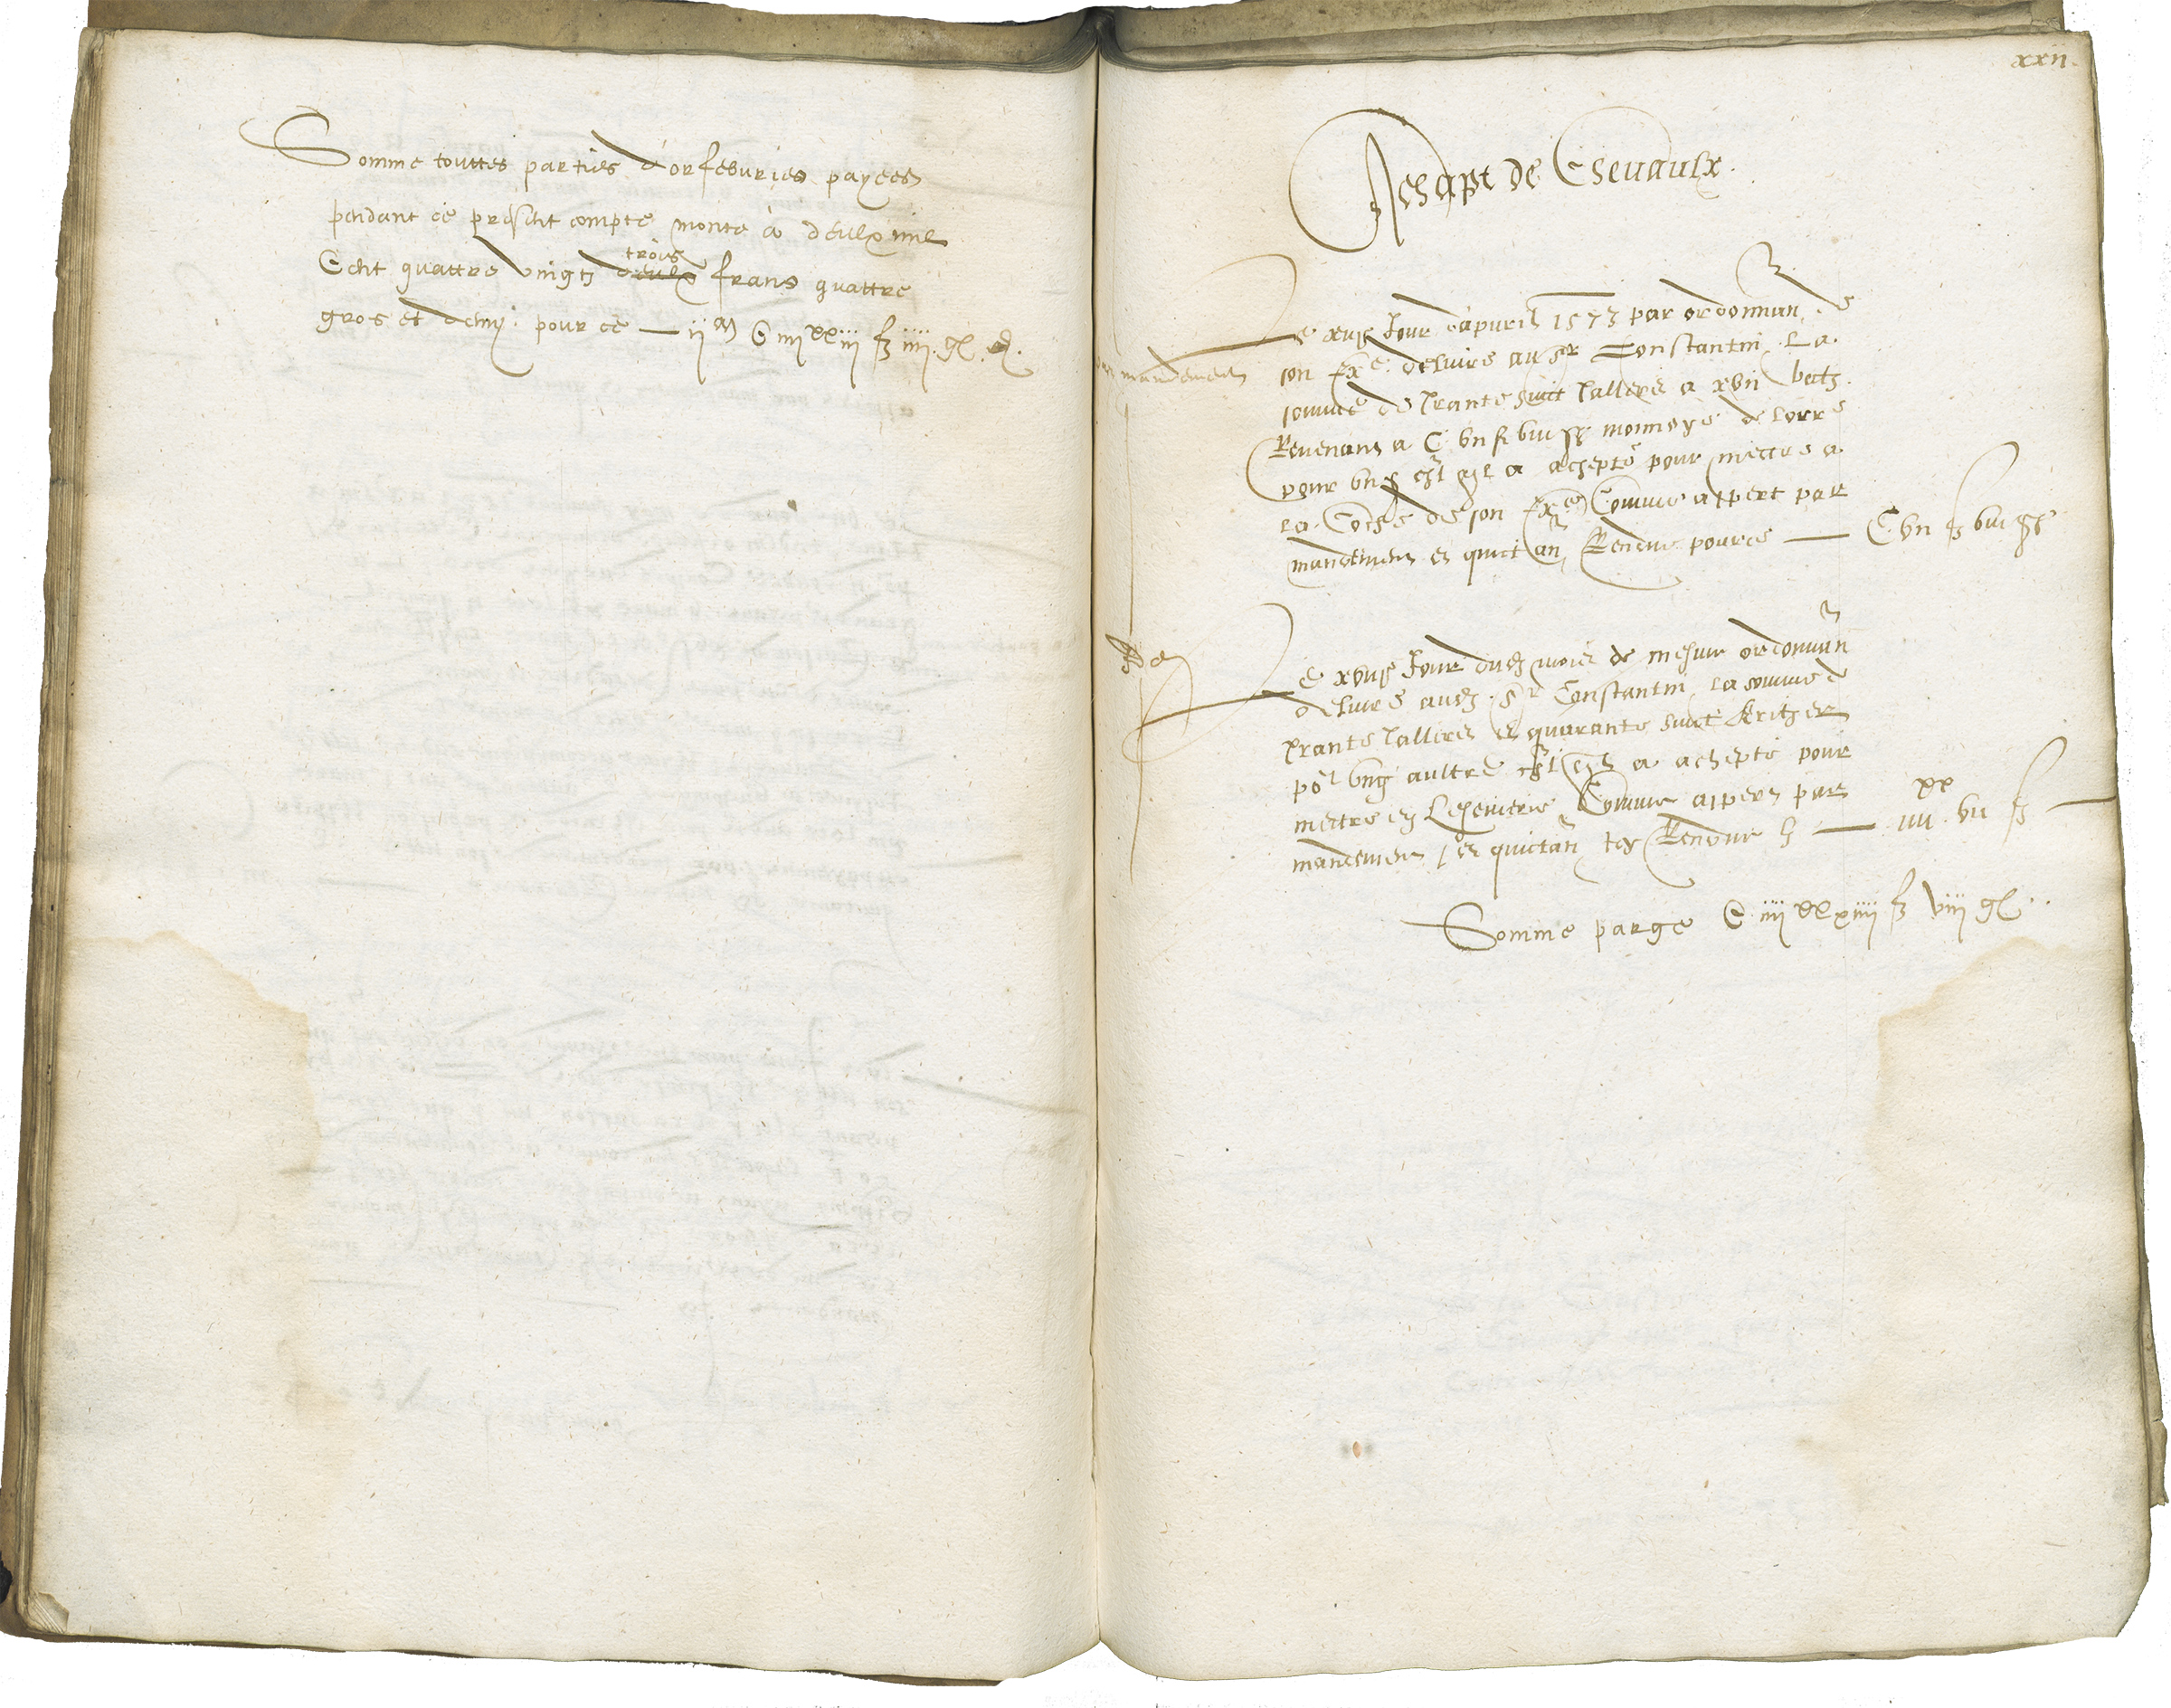 Somme touttes parties d'orfebvries payees
pendant ce present compte monte à deulx mil
Cent quattre vingtz deulx trois frans quattre
gros et demy. pour ce — ii^m C iiii^xx iii fz iiii. gr. d.
xxii.
Achapt de Chevaulx.
Le xvi^e Jour d'apvril 1573 par ordonnan de
son Ex^ce delivre au s^r Constantin La
somme de trante huict tallers a xvii batz.
Revenans a C vii fr viii gr monnoye de Lorr^e
pour ung chl qil a achepté pour mettre a
la Coche de son Ex^ce Comme appert par
mandement et quictan Rendue pource — C vii fz viii gr
mandement
Le xviii^e Jour dud mois de mesme ordonnan
delivre aud s^r Constantin la somme de
trante tallers et quarante huict kritzer
po^r ung aultre chl qil a achepté pour
mettre en Lescuierie Comme appert par
mandement et quictan Rendue — iiii^xx vii fz —
Somme parge C iiii^xx xiiii fz viii gr..